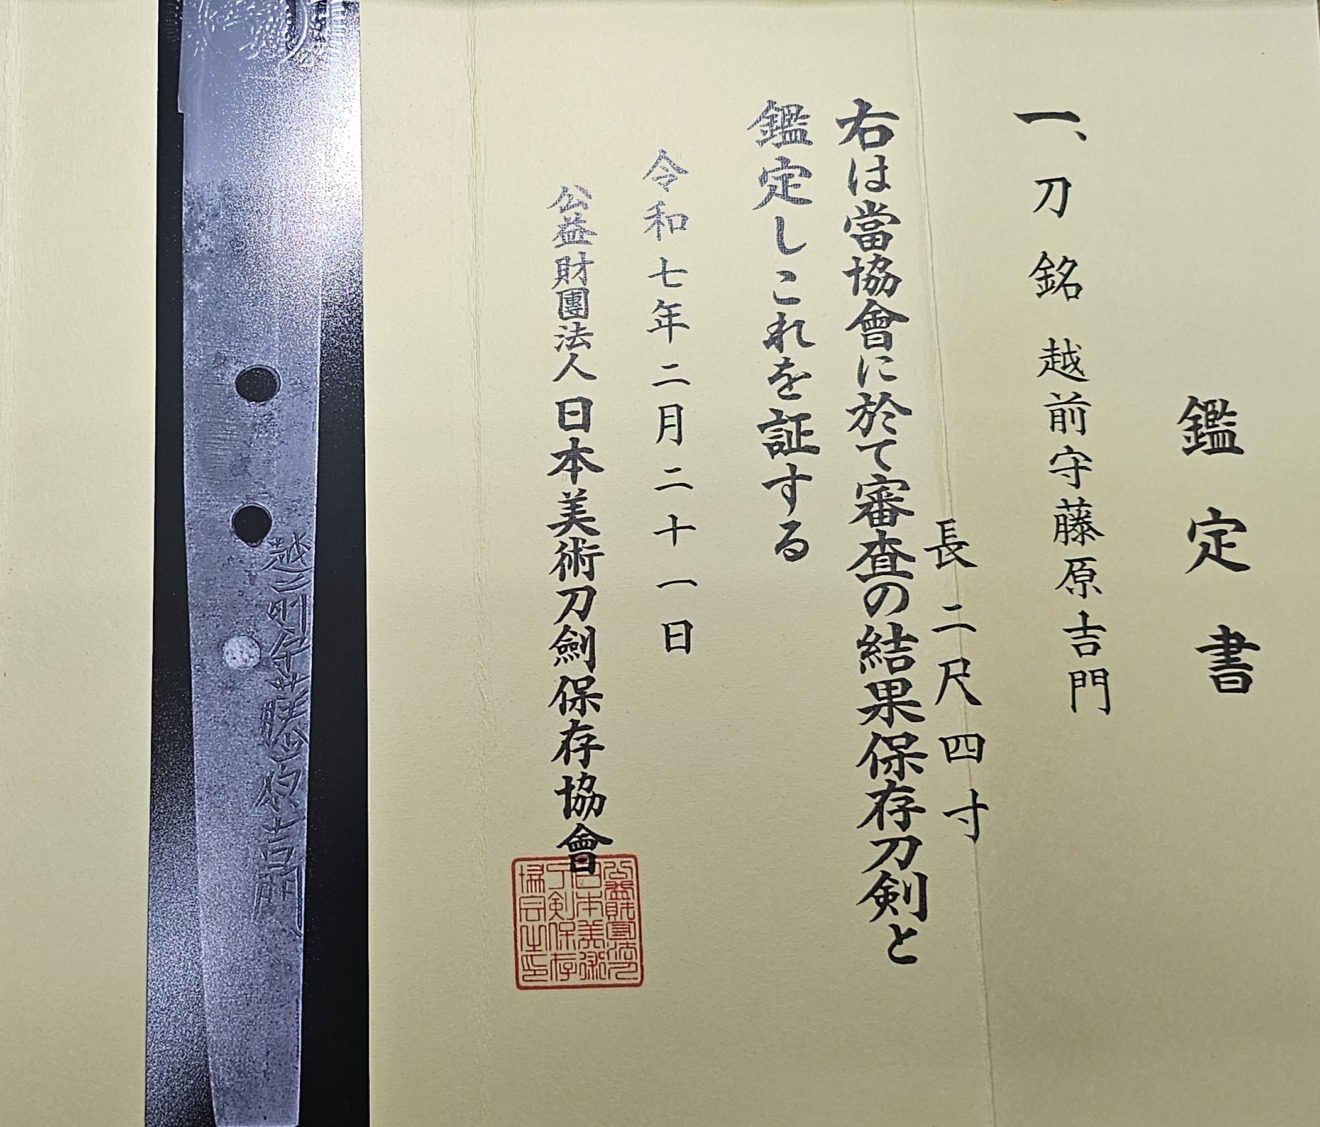 鑑定書
一、刀 銘 越前守藤原吉門
長 二尺四寸
右は當協會に於て審査の結果保存刀剣と
鑑定しこれを証する
令和七年二月二十一日
公益財團法人日本美術刀劍保存協會
公益財団法人
日本美術
刀剣保存
協会之印
越前守藤原吉門